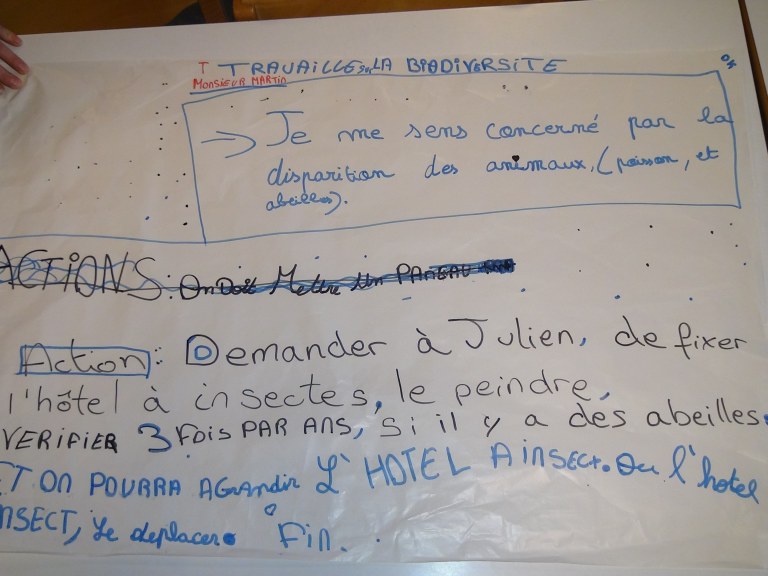 T TRAVAILLE sur LA BIODIVERSITE
OK
MONSIEUR MARTIN
→ Je me sens concerné par la
disparition des animaux, (poisson, et
abeilles).
ACTIONS: On Doit Mettre Un PANEAU
Action: Demander à Julien, de fixer
l'hôtel à insectes, le peindre,
VERIFIER 3 FOIS PAR ANS, si il y a des abeilles.
ET ON POURRA AGRANDIR L'HOTEL A INSECT. Ou l'hotel
INSECT, Le deplacer. Fin.